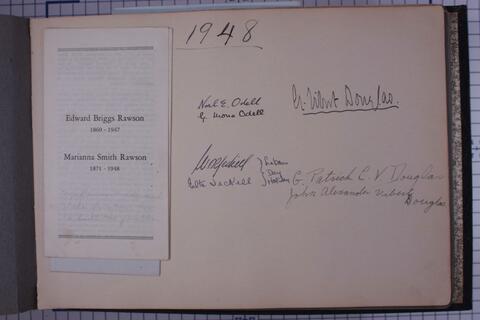 1948
Edward Briggs Rawson
1860 - 1947
Marianna Smith Rawson
1871 - 1948
Noel E. Odell
& Mona Odell
G. Vibert Douglas.
Labour
Day
Holiday
G. Patrick C. V. Douglas
John Alexander Vibert
Douglas